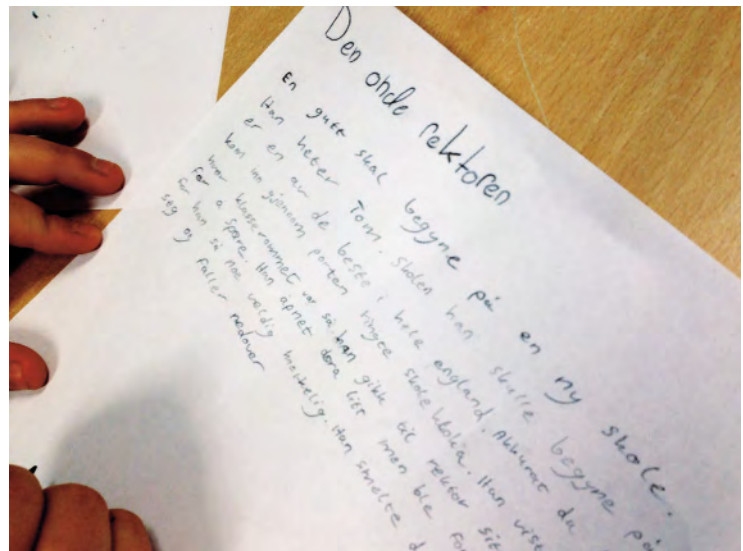 Den onde rektoren
En gutt skal begyne på en ny skole.
Han heter Tom. Skolen han skulle begyne på
er en av de beste i hele england. Akkurat da
kom inn gjønnom porten ringte skoleklokka. Han vist
hvor klasserommet var så han gikk til rektor
for a spøre. Han åpnet døra litt man ble
for han så noe veldig merkelig. Han smelte
seg og faller nedover